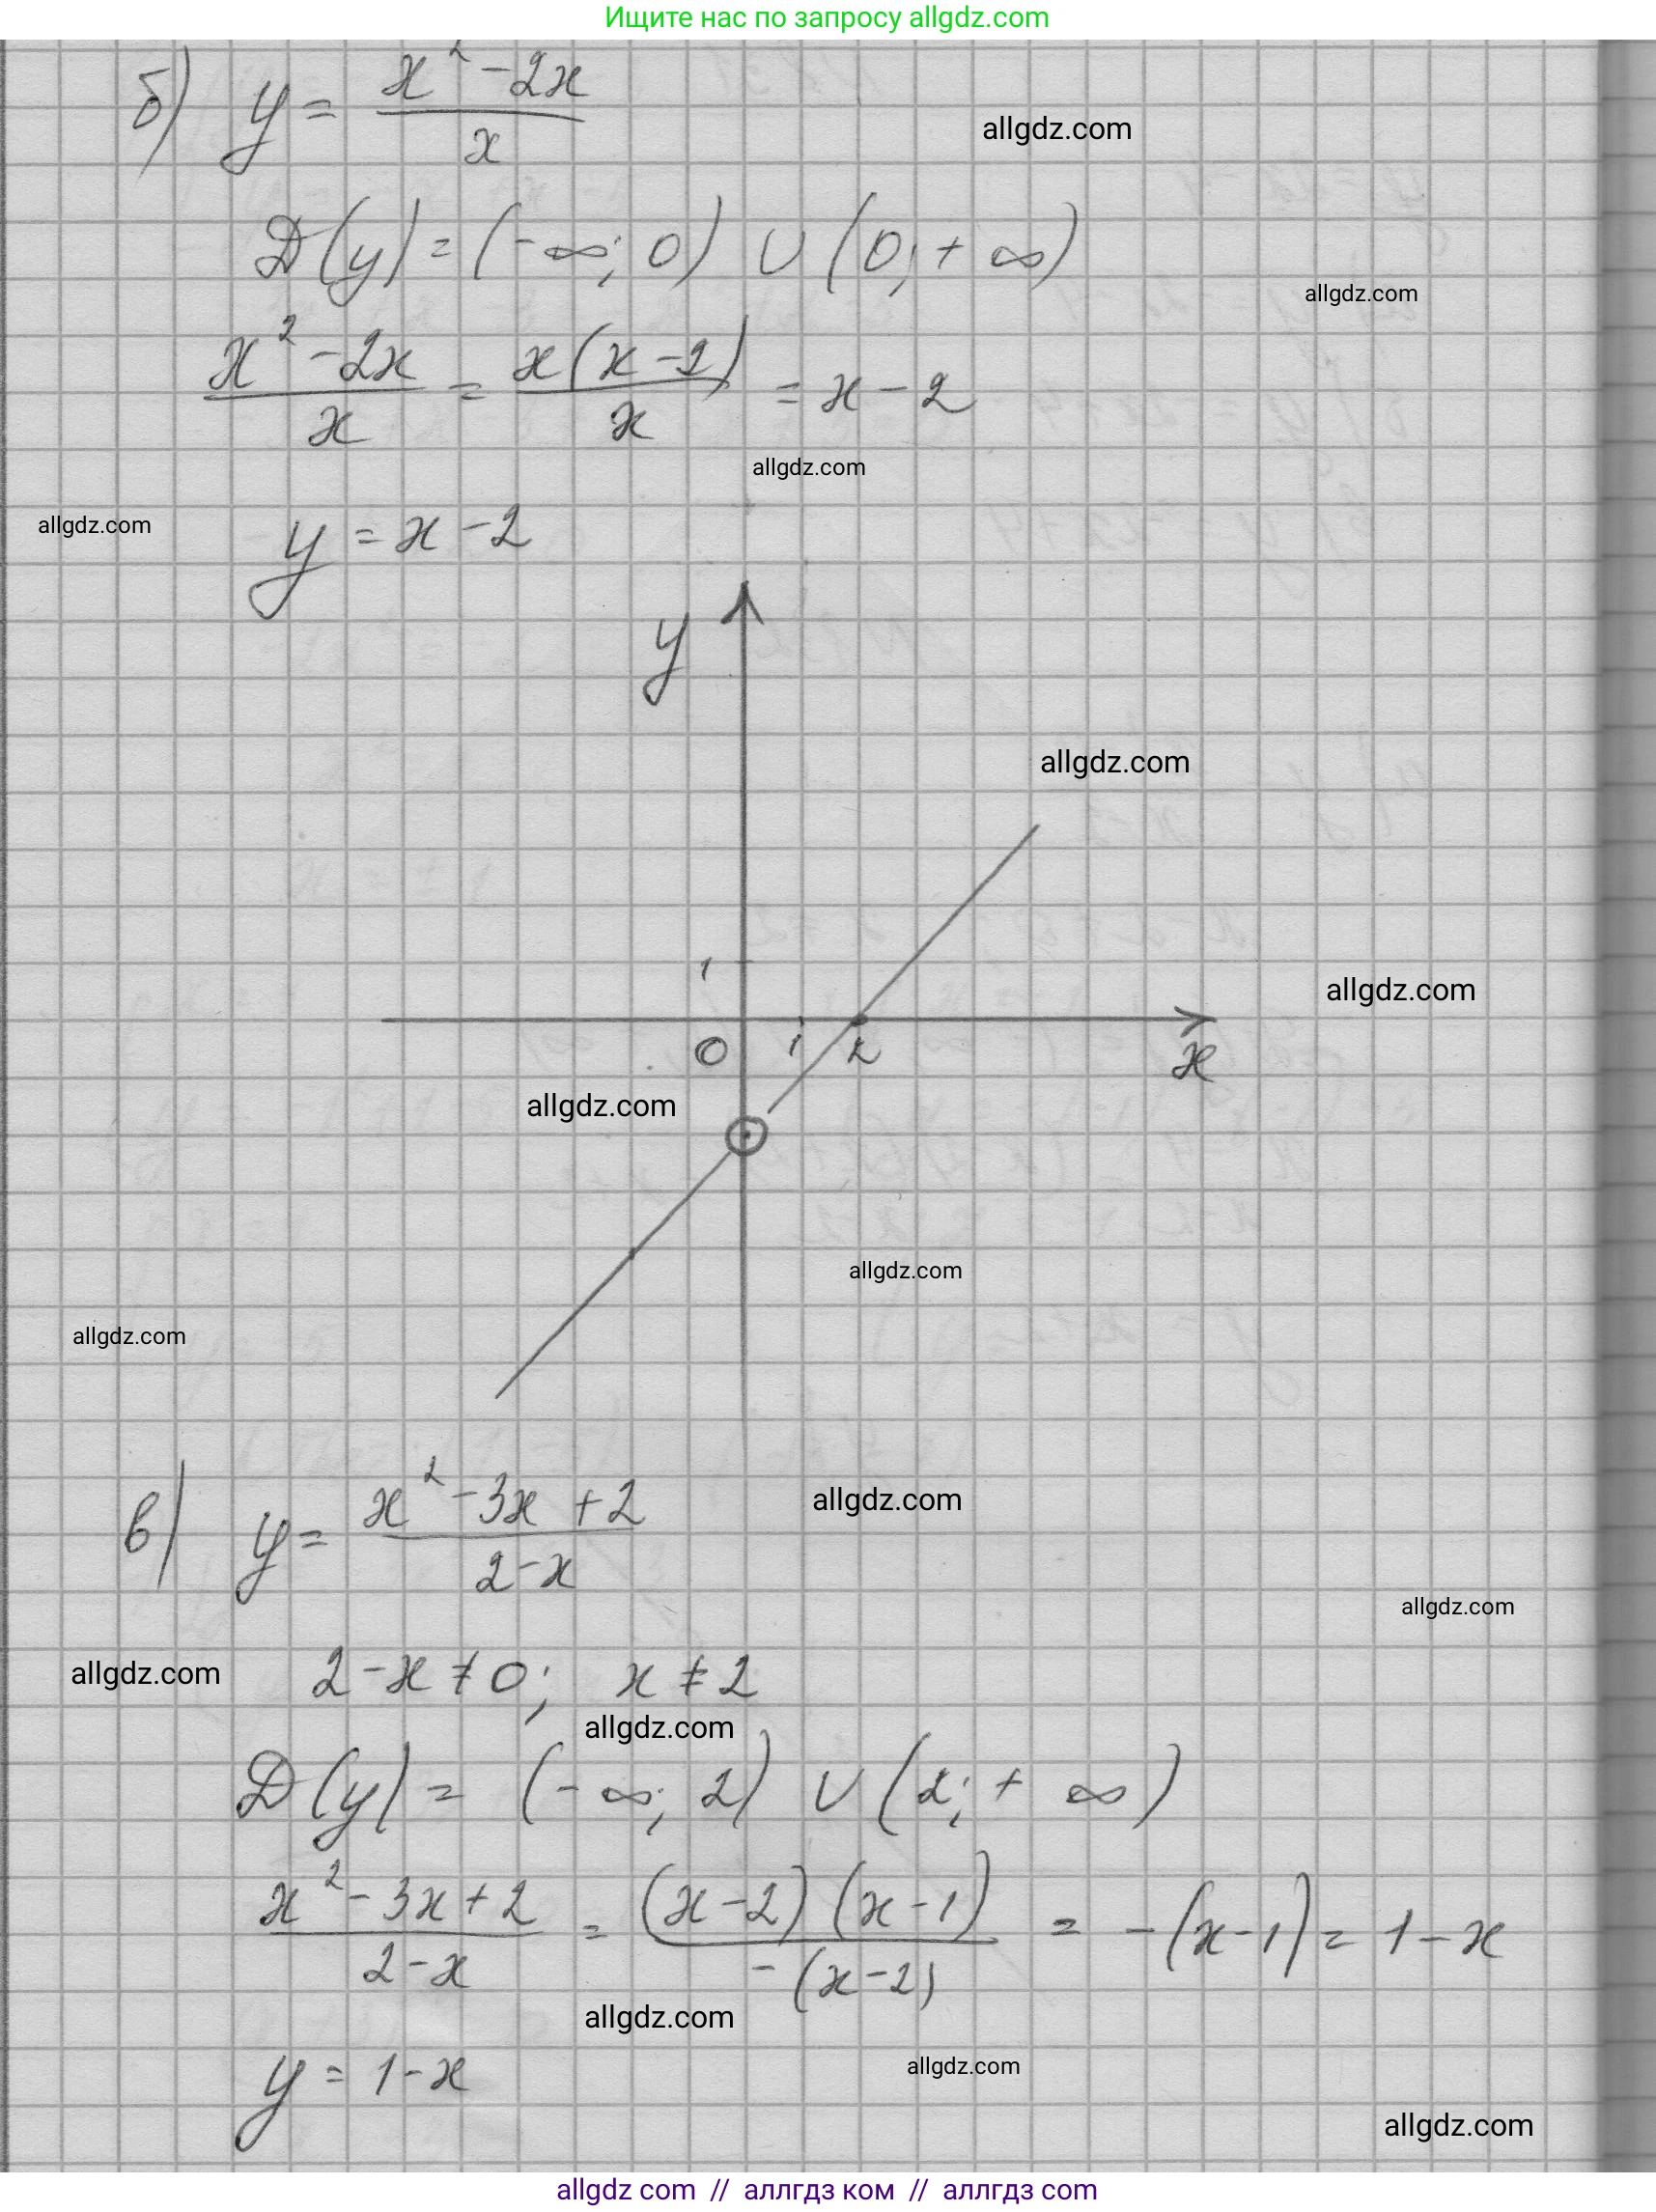 Ищите нас по запросу allgdz.com
б) y = (x² - 2x)/x
allgdz.com
D(y) = (-∞; 0) ∪ (0; + ∞)
allgdz.com
(x² - 2x)/x = x(x - 2)/x = x - 2
allgdz.com
allgdz.com
y = x - 2
y
allgdz.com
1
allgdz.com
0 1 2 x
allgdz.com
allgdz.com
allgdz.com
в) y = (x² - 3x + 2)/(2 - x)
allgdz.com
allgdz.com
allgdz.com
2 - x ≠ 0; x ≠ 2
allgdz.com
D(y) = (-∞; 2) ∪ (2; + ∞)
(x² - 3x + 2)/(2 - x) = (x - 2)(x - 1)/-(x - 2) = -(x - 1) = 1 - x
allgdz.com
allgdz.com
y = 1 - x
allgdz.com
allgdz com // аллгдз ком // аллгдз com